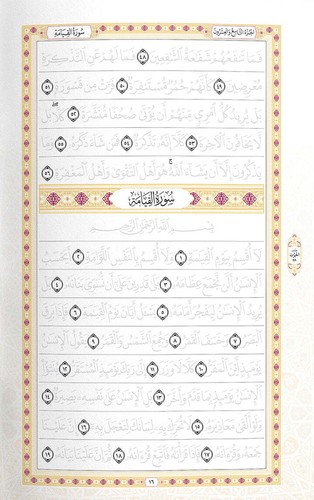 سُورَةُ القِيَامَة
الجزء التاسع والعشرون
فَمَا تَنفَعُهُمْ شَفَاعَةُ الشَّافِعِينَ ٤٨ فَمَا لَهُمْ عَنِ التَّذْكِرَةِ
مُعْرِضِينَ ٤٩ كَأَنَّهُمْ حُمُرٌ مُّسْتَنفِرَةٌ ٥٠ فَرَّتْ مِن قَسْوَرَةٍ ٥١
بَلْ يُرِيدُ كُلُّ امْرِئٍ مِّنْهُمْ أَن يُؤْتَىٰ صُحُفًا مُّنَشَّرَةً ٥٢ كَلَّا بَل
لَّا يَخَافُونَ الْآخِرَةَ ٥٣ كَلَّا إِنَّهُ تَذْكِرَةٌ ٥٤ فَمَن شَاءَ ذَكَرَهُ ٥٥ وَمَا
يَذْكُرُونَ إِلَّا أَن يَشَاءَ اللَّهُ هُوَ أَهْلُ التَّقْوَىٰ وَأَهْلُ الْمَغْفِرَةِ ٥٦
سُورَةُ القِيَامَة
بِسْمِ اللَّهِ الرَّحْمَٰنِ الرَّحِيمِ
لَا أُقْسِمُ بِيَوْمِ الْقِيَامَةِ ١ وَلَا أُقْسِمُ بِالنَّفْسِ اللَّوَّامَةِ ٢ أَيَحْسَبُ
الْإِنسَانُ أَلَّن نَّجْمَعَ عِظَامَهُ ٣ بَلَىٰ قَادِرِينَ عَلَىٰ أَن نُّسَوِّيَ بَنَانَهُ ٤ بَلْ
يُرِيدُ الْإِنسَانُ لِيَفْجُرَ أَمَامَهُ ٥ يَسْأَلُ أَيَّانَ يَوْمُ الْقِيَامَةِ ٦ فَإِذَا بَرِقَ
الْبَصَرُ ٧ وَخَسَفَ الْقَمَرُ ٨ وَجُمِعَ الشَّمْسُ وَالْقَمَرُ ٩ يَقُولُ الْإِنسَانُ
يَوْمَئِذٍ أَيْنَ الْمَفَرُّ ١٠ كَلَّا لَا وَزَرَ ١١ إِلَىٰ رَبِّكَ يَوْمَئِذٍ الْمُسْتَقَرُّ ١٢ يُنَبَّأُ
الْإِنسَانُ يَوْمَئِذٍ بِمَا قَدَّمَ وَأَخَّرَ ١٣ بَلِ الْإِنسَانُ عَلَىٰ نَفْسِهِ بَصِيرَةٌ ١٤
وَلَوْ أَلْقَىٰ مَعَاذِيرَهُ ١٥ لَا تُحَرِّكْ بِهِ لِسَانَكَ لِتَعْجَلَ بِهِ ١٦ إِنَّ عَلَيْنَا
جَمْعَهُ وَقُرْآنَهُ ١٧ فَإِذَا قَرَأْنَاهُ فَاتَّبِعْ قُرْآنَهُ ١٨ ثُمَّ إِنَّ عَلَيْنَا بَيَانَهُ ١٩
١٦